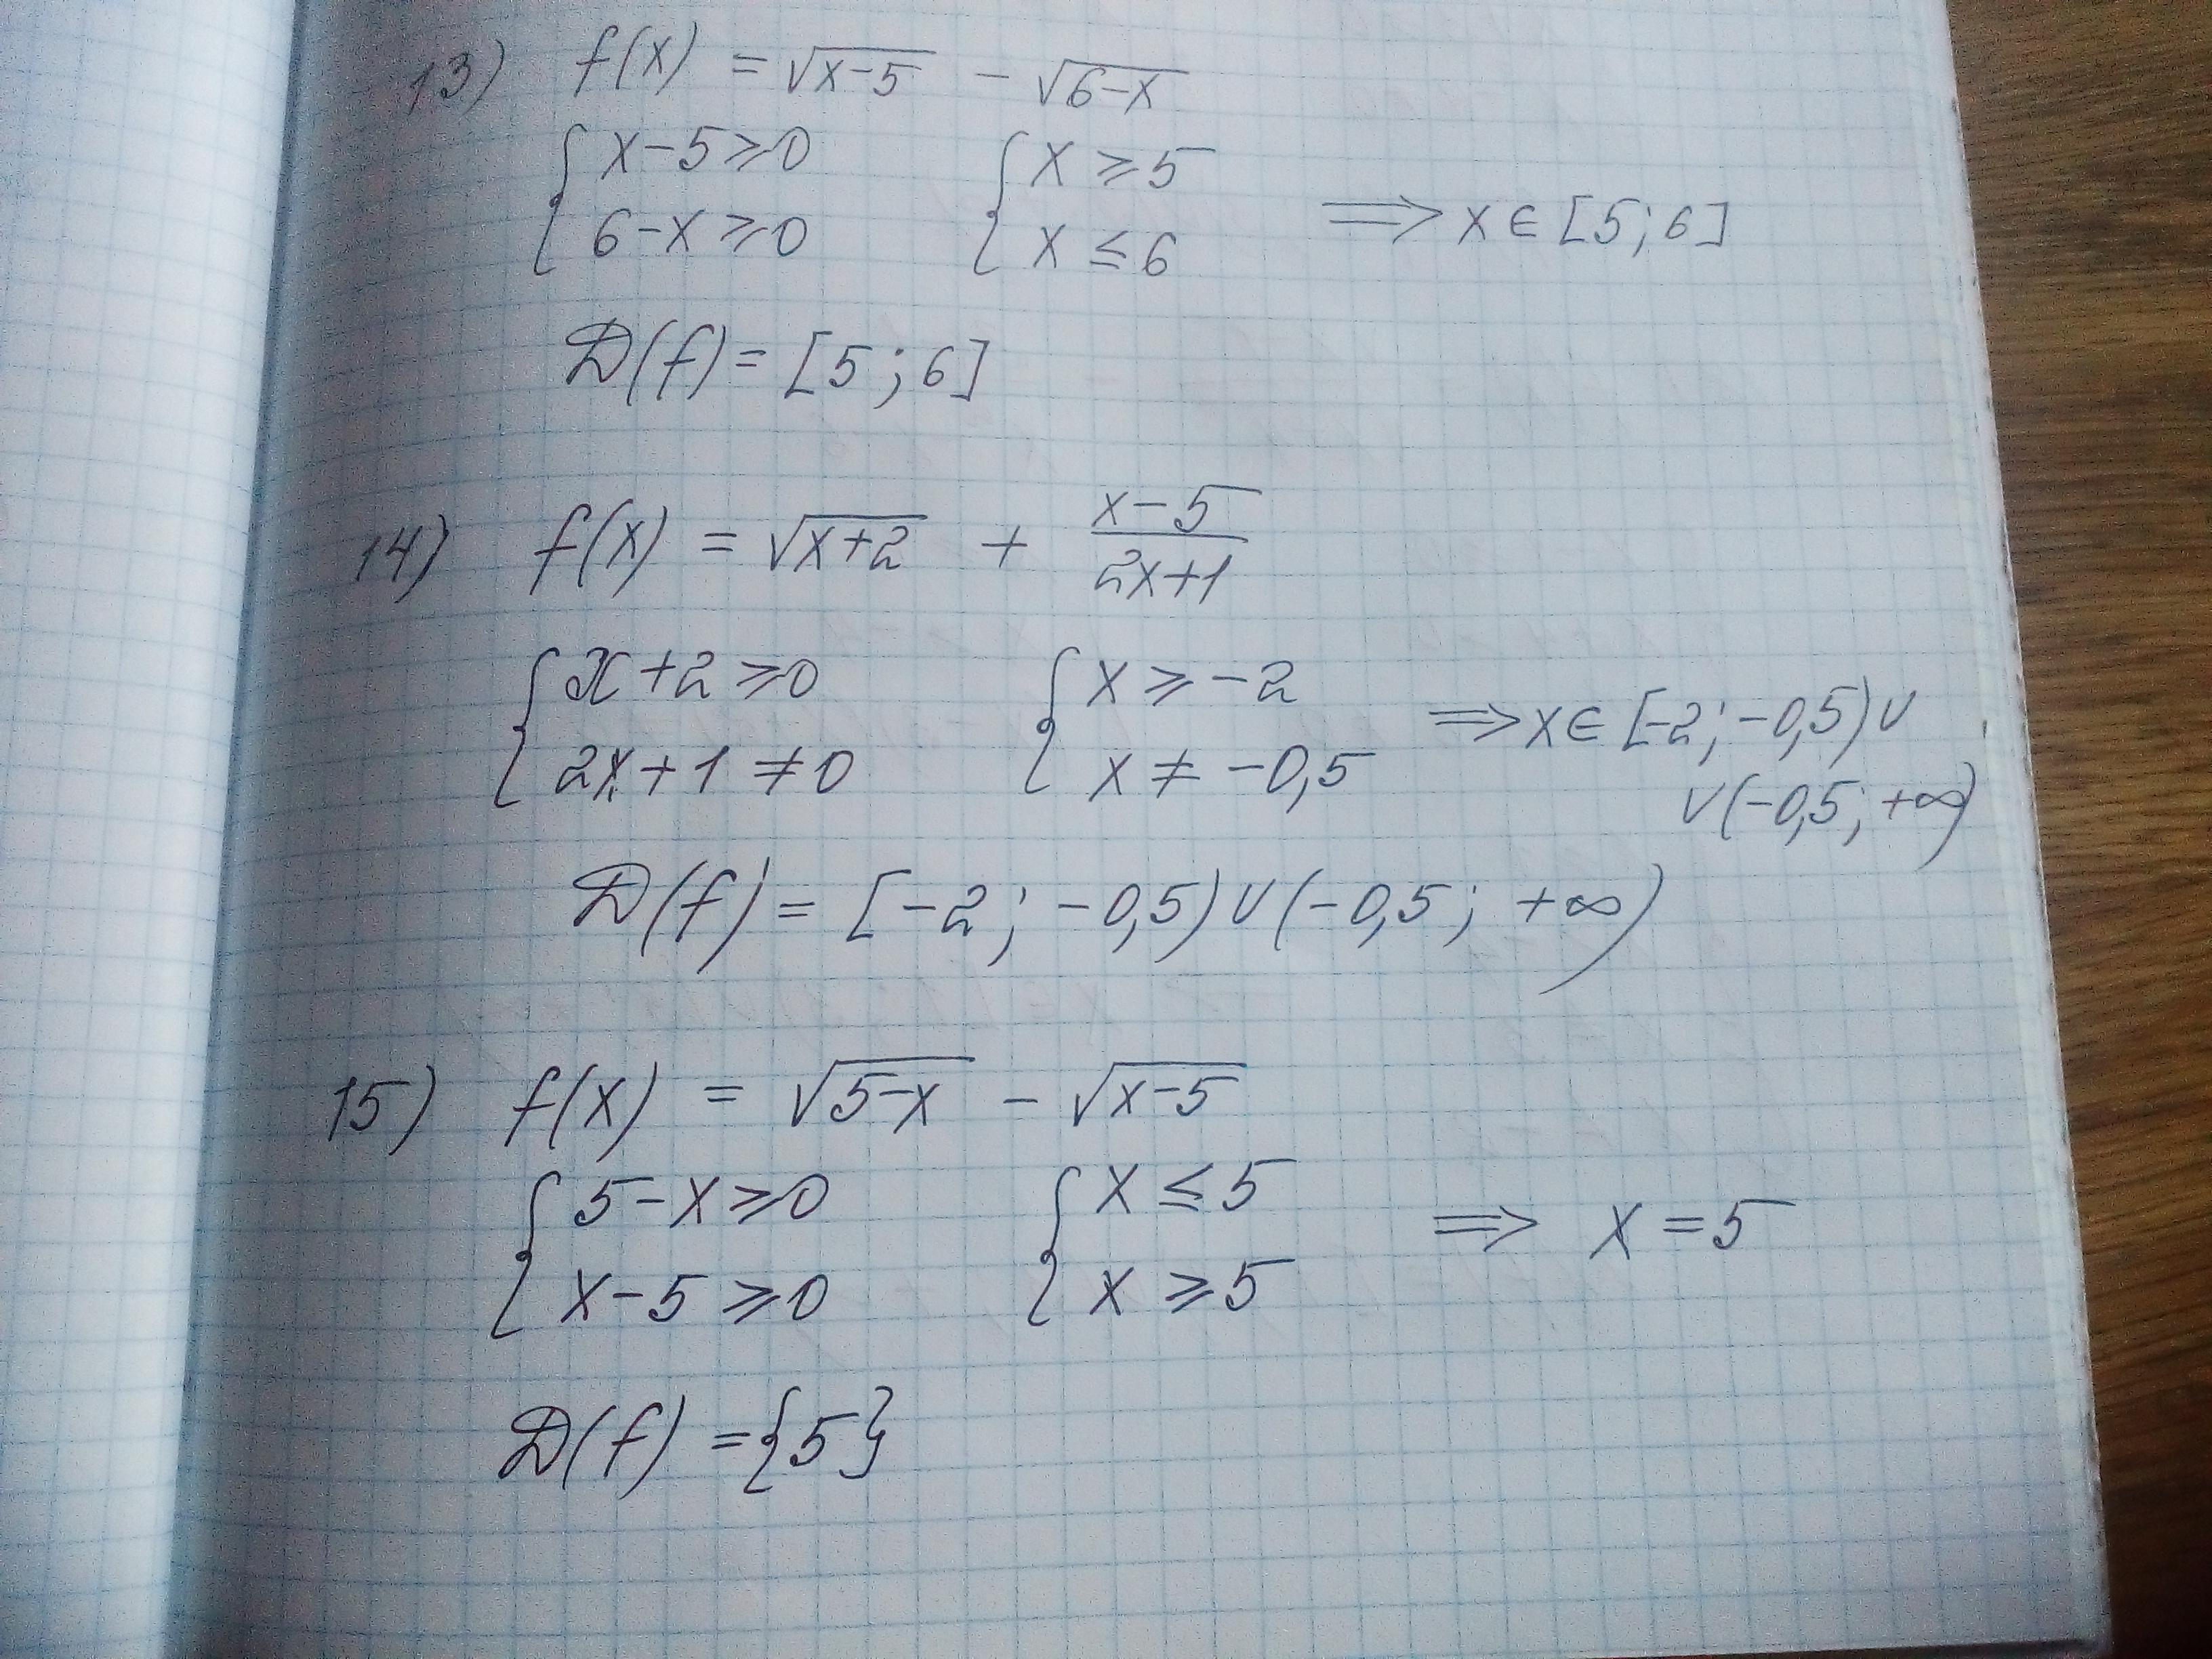 13) f(x) = √(x-5) - √(6-x)
{ x-5 ≥ 0 { x ≥ 5
6-x ≥ 0 x ≤ 6 ⟹ x ∈ [5; 6]
D(f) = [5; 6]
14) f(x) = √(x+2) + (x-5)/(2x+1)
{ x+2 ≥ 0 { x ≥ -2 ⟹ x ∈ [-2; -0,5) ∪
2x+1 ≠ 0 x ≠ -0,5 ∪ (-0,5; +∞)
D(f) = [-2; -0,5) ∪ (-0,5; +∞)
15) f(x) = √(5-x) - √(x-5)
{ 5-x ≥ 0 { x ≤ 5 ⟹ x = 5
x-5 ≥ 0 x ≥ 5
D(f) = {5}